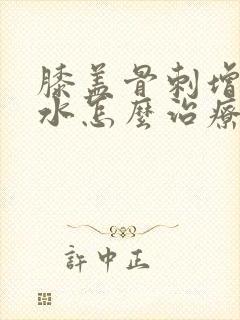 膝盖骨刺增
水怎麼治療
許中正